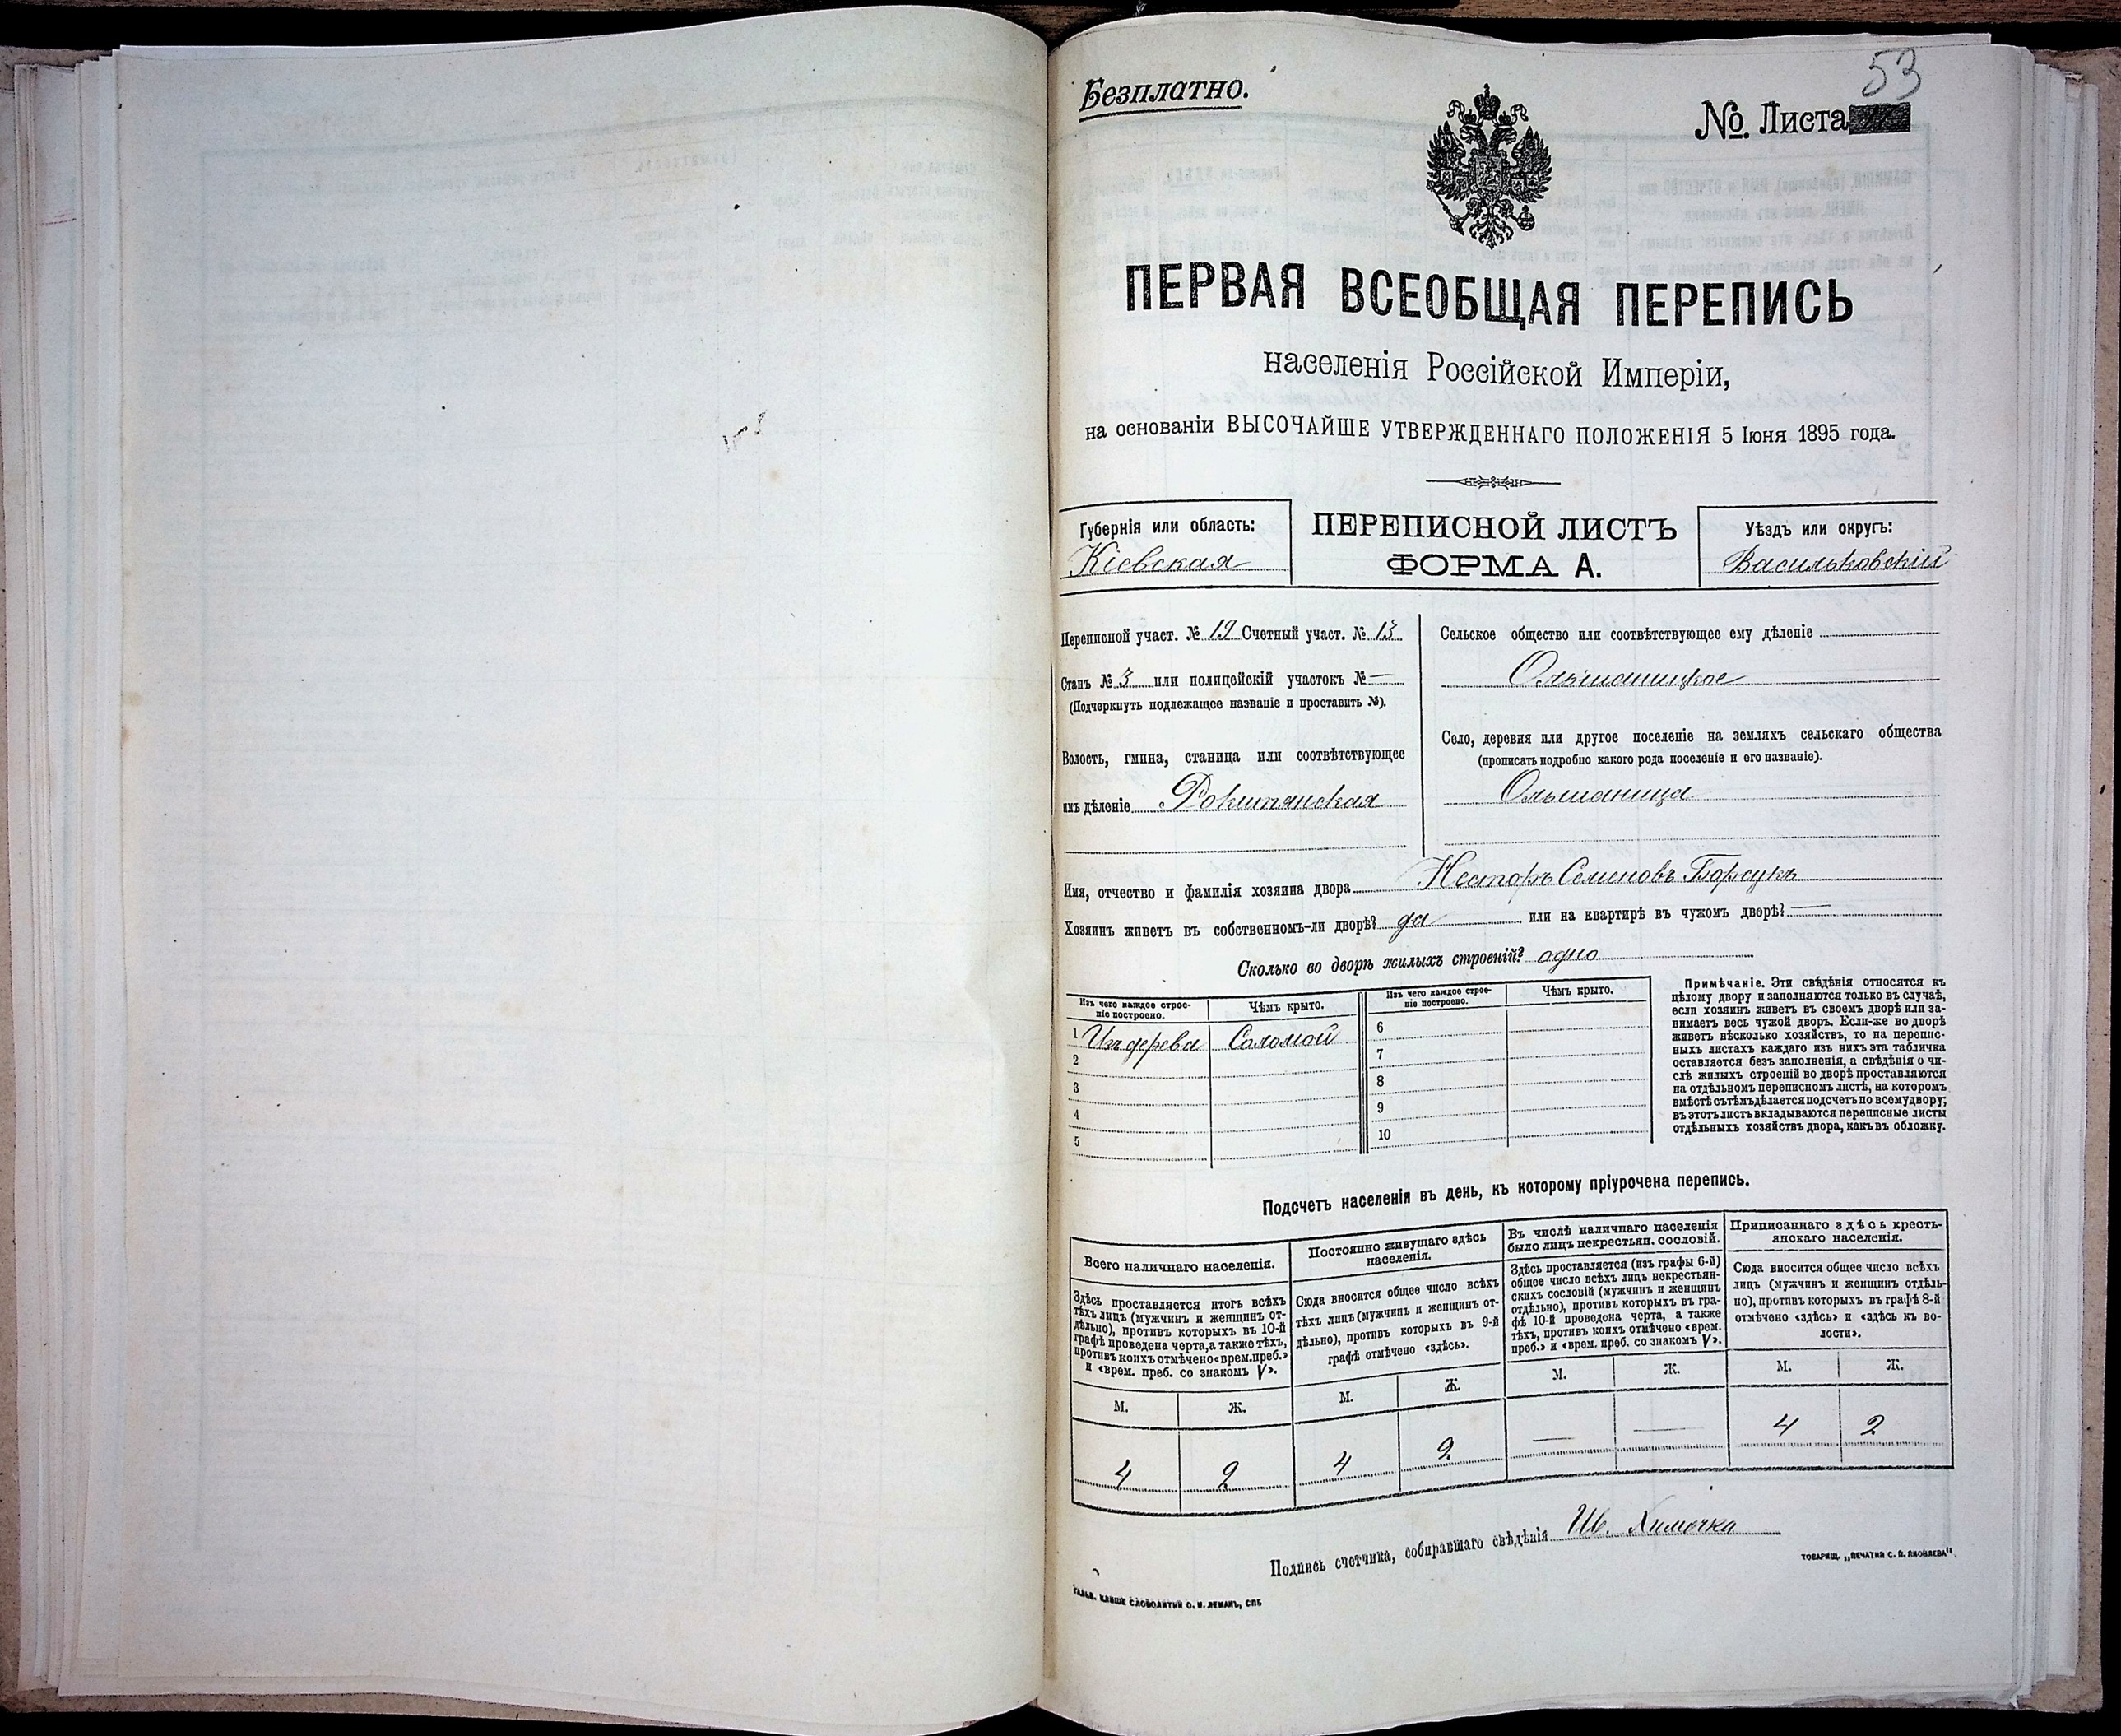 53
Безплатно.
№. Листа
ПЕРВАЯ ВСЕОБЩАЯ ПЕРЕПИСЬ
населенія Россійской Имперіи,
на основаніи ВЫСОЧАЙШЕ УТВЕРЖДЕННАГО ПОЛОЖЕНІЯ 5 Іюня 1895 года.
Губернія или область:
Кіевская
ПЕРЕПИСНОЙ ЛИСТЪ
ФОРМА А.
Уѣздъ или округъ:
Васильковскій
Переписной участ. № 19 Счетный участ. № 13
Станъ № 3 или полицейскій участокъ № —
(Подчеркнуть подлежащее названіе и проставить №).
Волость, гмина, станица или соотвѣтствующее
имъ дѣленіе Рокитянская
Сельское общество или соотвѣтствующее ему дѣленіе
Ольшаницкое
Село, деревня или другое поселеніе на земляхъ сельскаго общества
(прописать подробно какого рода поселеніе и его названіе).
Ольшаница
Имя, отчество и фамилія хозяина двора Несторъ Семеновъ Борсукъ
Хозяинъ живетъ въ собственномъ-ли дворѣ? да или на квартирѣ въ чужомъ дворѣ? —
Сколько во дворѣ жилыхъ строеній? одно
Изъ чего каждое строе-
ніе построено.
Чѣмъ крыто.
Изъ чего каждое строе-
ніе построено.
Чѣмъ крыто.
1 Изъ дерева Соломой 6
2 7
3 8
4 9
5 10
Примѣчаніе. Эти свѣдѣнія относятся къ
цѣлому двору и заполняются только въ случаѣ,
если хозяинъ живетъ въ своемъ дворѣ или за-
нимаетъ весь чужой дворъ. Если-же во дворѣ
живетъ нѣсколько хозяйствъ, то на перепис-
ныхъ листахъ каждаго изъ нихъ эта табличка
оставляется безъ заполненія, а свѣдѣнія о чи-
слѣ жилыхъ строеній во дворѣ проставляются
на отдѣльномъ переписномъ листѣ, на которомъ
вмѣстѣ съ тѣмъ дѣлается подсчетъ по всему двору;
въ этотъ листъ вкладываются переписные листы
отдѣльныхъ хозяйствъ двора, какъ въ обложку.
Подсчетъ населенія въ день, къ которому пріурочена перепись.
Всего наличнаго населенія.
Здѣсь проставляется итогъ всѣхъ
тѣхъ лицъ (мужчинъ и женщинъ от-
дѣльно), противъ которыхъ въ 10-й
графѣ проведена черта, а также тѣхъ,
противъ коихъ отмѣчено «врем. преб.»
и «врем. преб. со знакомъ V».
М. Ж.
4 2
Постоянно живущаго здѣсь
населенія.
Сюда вносится общее число всѣхъ
тѣхъ лицъ (мужчинъ и женщинъ от-
дѣльно), противъ которыхъ въ 9-й
графѣ отмѣчено «здѣсь».
М. Ж.
4 2
Въ числѣ наличнаго населенія
было лицъ некрестьян. сословій.
Здѣсь проставляется (изъ графы 6-й)
общее число всѣхъ лицъ некрестьян-
скихъ сословій (мужчинъ и женщинъ
отдѣльно), противъ которыхъ въ гра-
фѣ 10-й проведена черта, а также
тѣхъ, противъ коихъ отмѣчено «врем.
преб.» и «врем. преб. со знакомъ V».
М. Ж.
— —
Приписаннаго здѣсь кресть-
янскаго населенія.
Сюда вносится общее число всѣхъ
лицъ (мужчинъ и женщинъ отдѣль-
но), противъ которыхъ въ графѣ 8-й
отмѣчено «здѣсь» и «здѣсь къ во-
лости».
М. Ж.
4 2
Подпись счетчика, собиравшаго свѣдѣнія Ив. Химочка
ТОВАРИЩ. „ПЕЧАТНЯ С. П. ЯКОВЛЕВА".
ГАЛЬВ. КЛИШЕ СЛОВОЛИТНИ О. И. ЛЕМАНЪ, СПБ